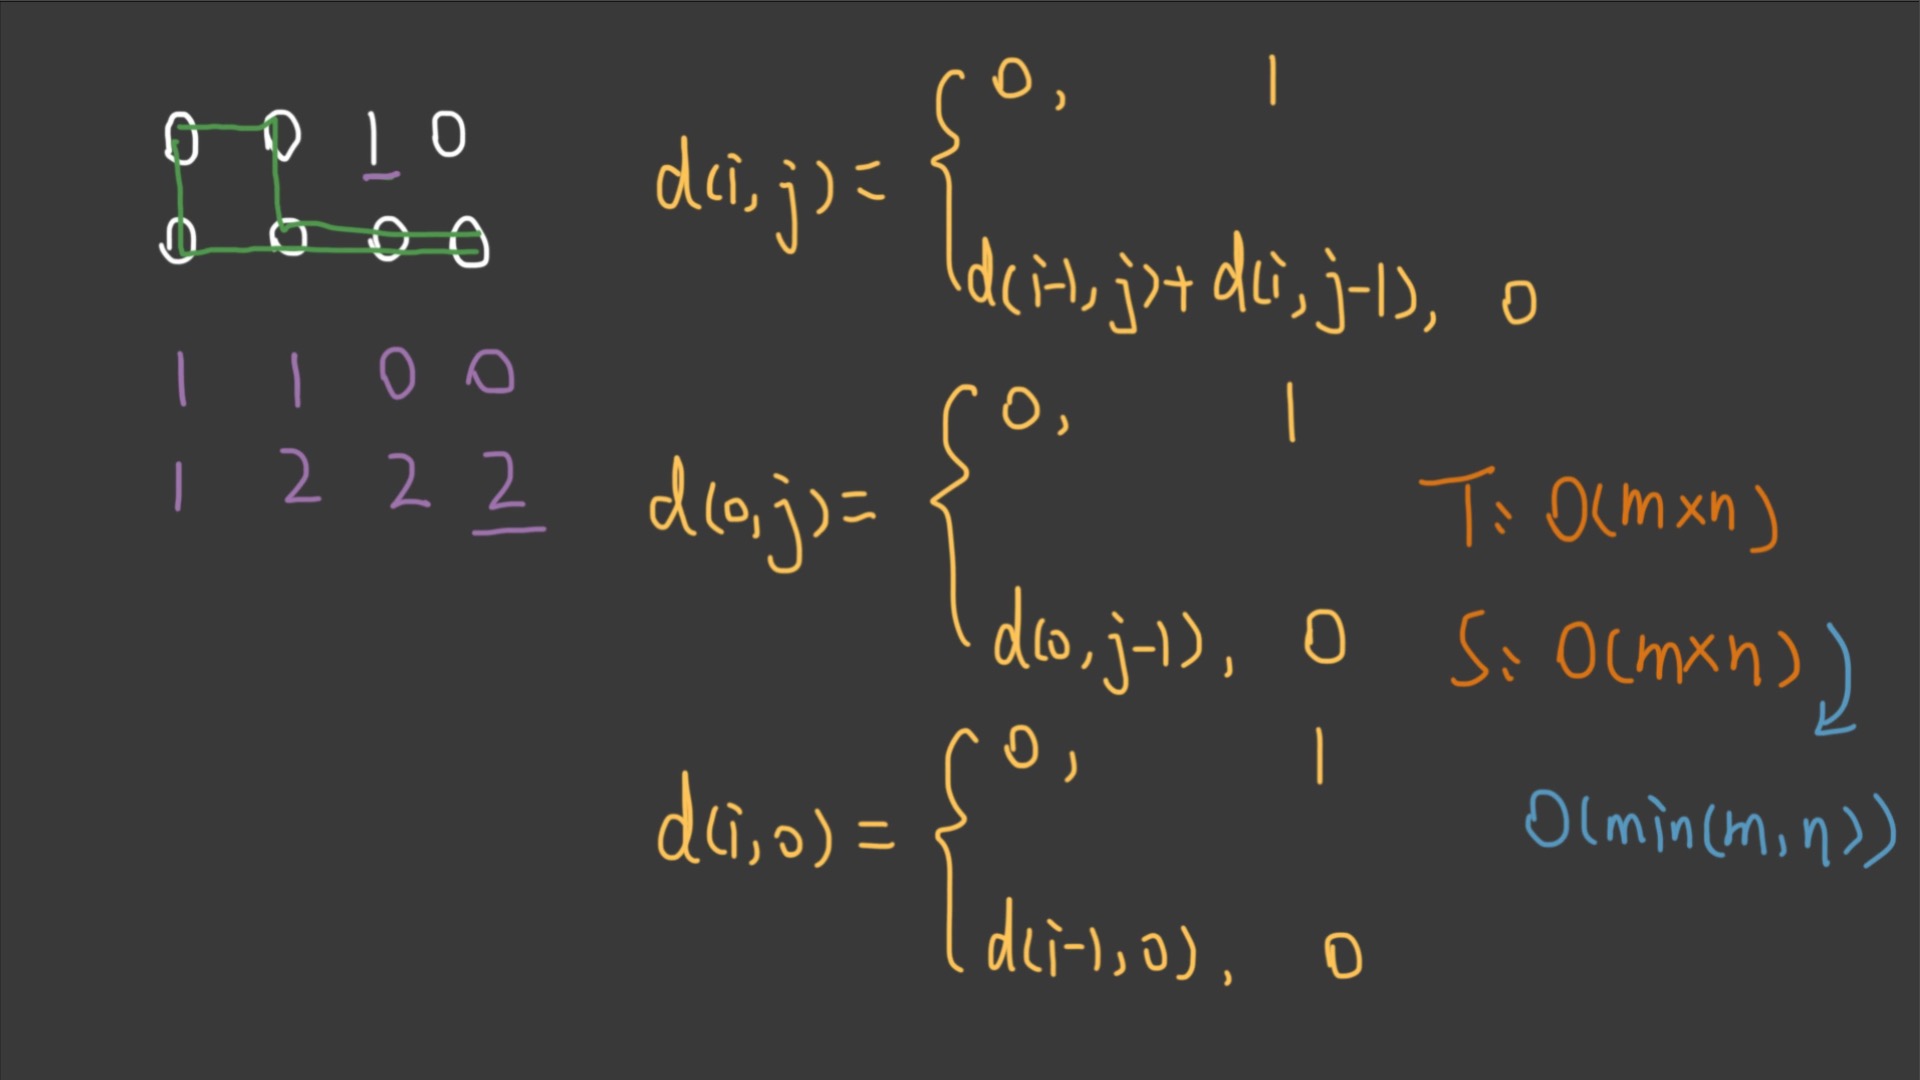 0 0 1 0
0 0 0 0
1 1 0 0
1 2 2 2
d(i,j)=
0, 1
d(i-1,j)+d(i,j-1), 0
d(0,j)=
0, 1
d(0,j-1), 0
d(i,0)=
0, 1
d(i-1,0), 0
T: O(m×n)
S: O(m×n)
O(min(m,n))